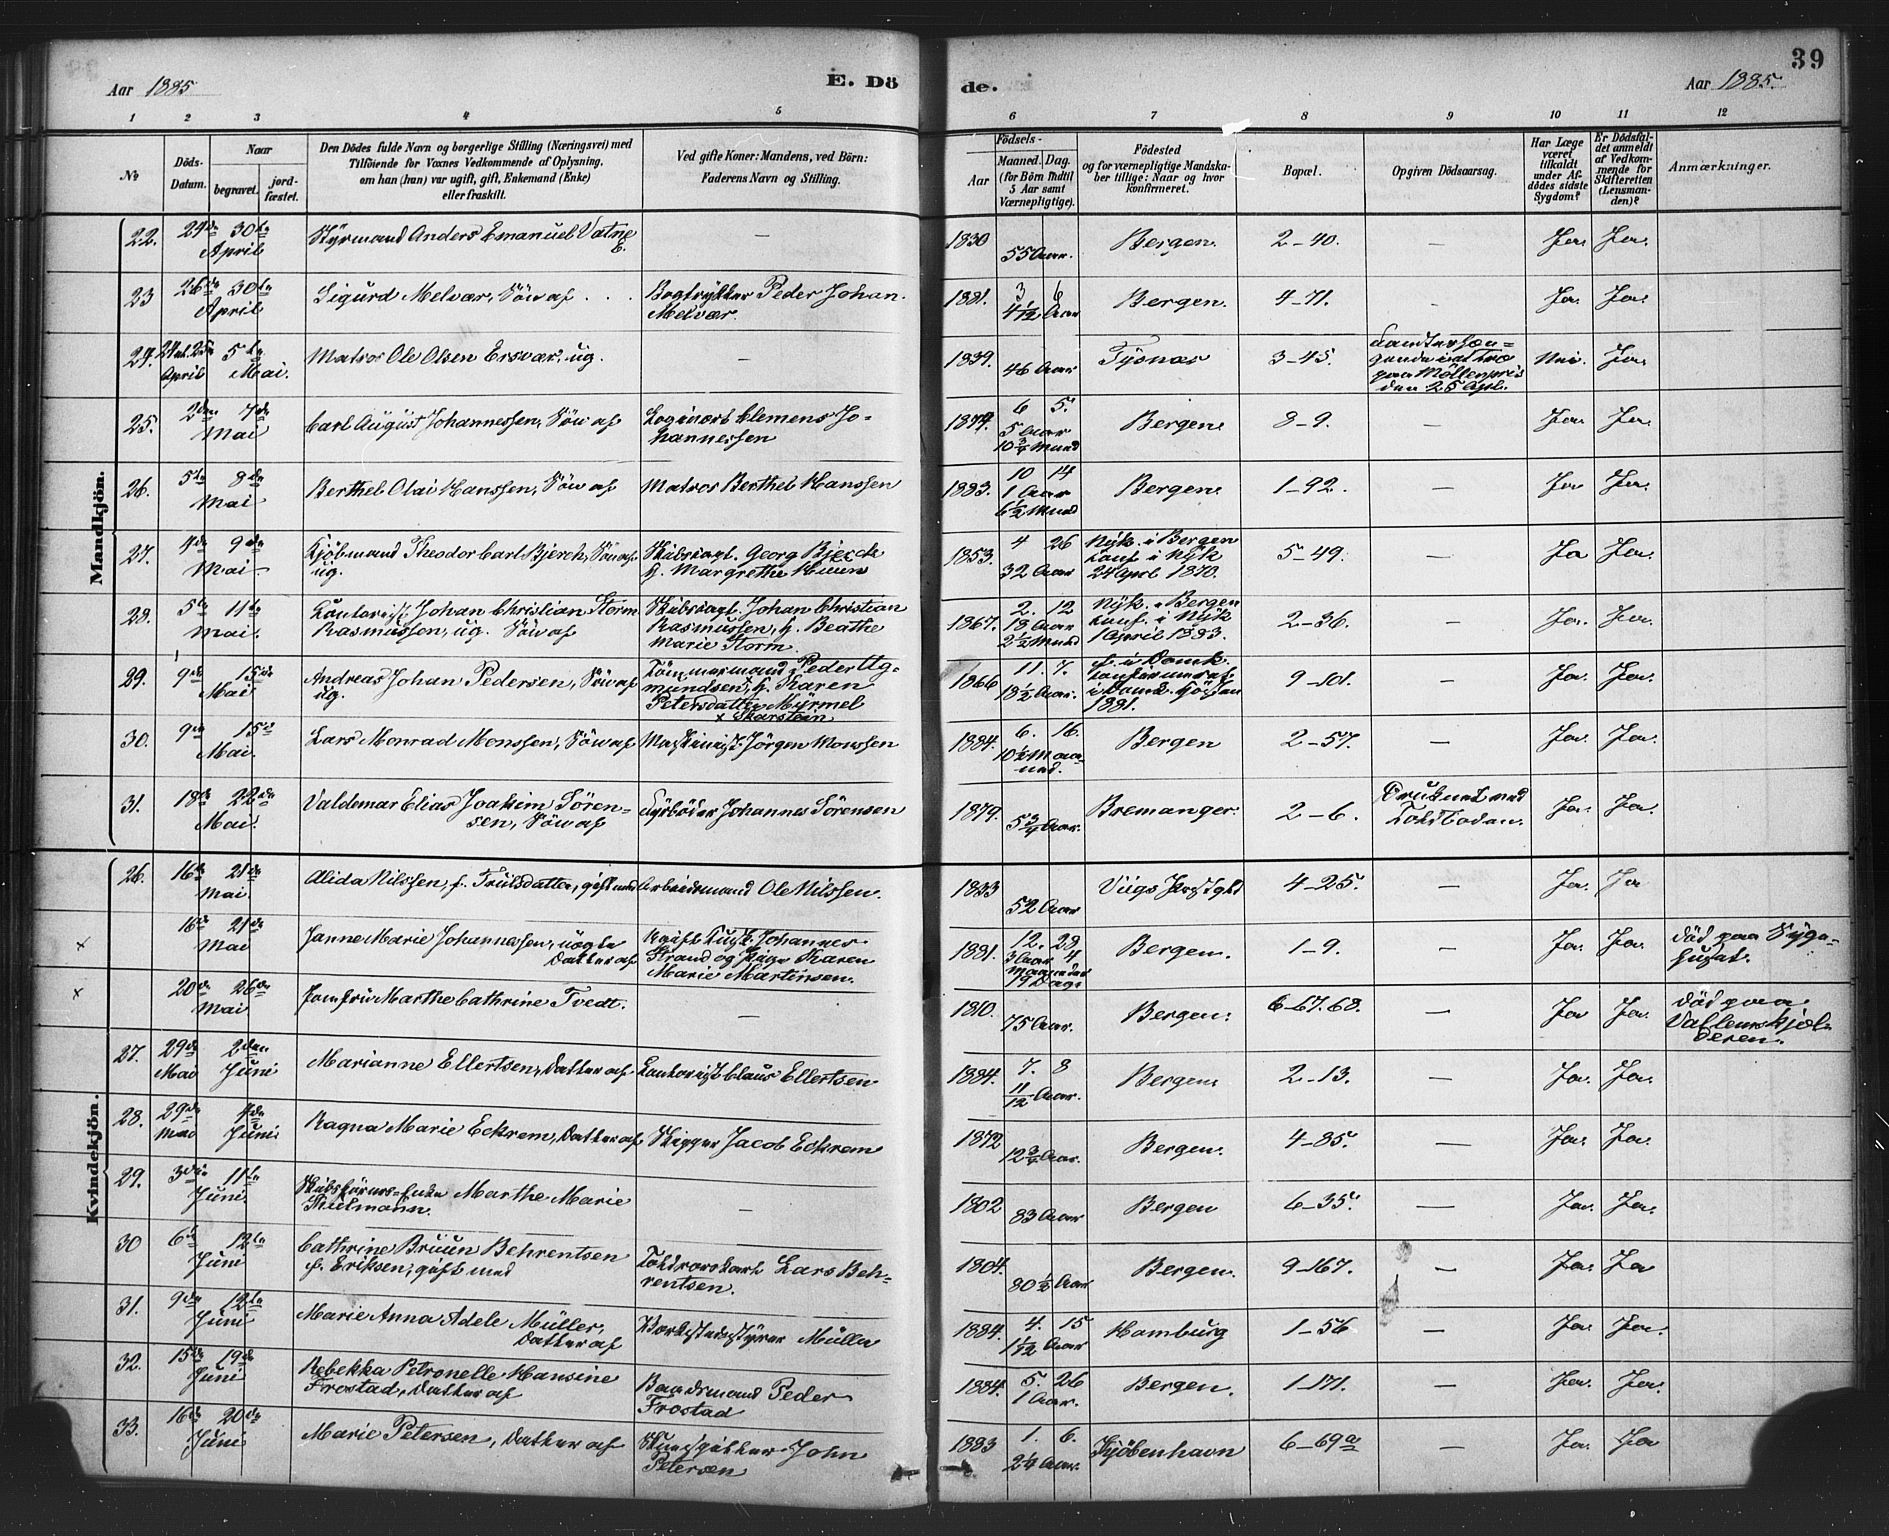 39
Aar 1885 E. Dö de. Aar 1885.
1 2 3 4 5 6 7 8 9 10 11 12
No
Döds-Datum.
Naar
begravet.
jordfæstet.
Den Dödes fulde Navn og borgerlige Stilling (Næringsvei) med
Tilföiende for Voxnes Vedkommende af Oplysning,
om han (hun) var ugift, gift, Enkemand (Enke)
eller fraskilt.
Ved gifte Koner: Mandens, ved Börn:
Faderens Navn og Stilling.
Födsels-
Aar
Maaned. Dag.
(for Börn indtil
5 Aar samt
Værnepligtige).
Födested
og for værnepligtige Mandskaber tillige: Naar og hvor
konfirmeret.
Bopæl.
Opgiven Dödsaarsag.
Har Læge
været
tilkaldt
under Afdödes sidste
Sygdom?
Er Dödsfaldet anmeldt
af Vedkommende for
Skifteretten
(Lensmanden)?
Anmærkninger.
Mandkjön.
22. 29de April 30te Styrmand Anders Emanuel Vatne — 1830 55 Aar. Bergen. 2-40. — Ja. Ja.
23 26de April 30te Sigurd Melvær, Sön af . . . Bogtrykker Peder Johan Melvær. 1881. 3 6 4 1/12 Aar Bergen. 4-71. — Ja. Ja.
24. 24 al. 25de April 5te Mai. Matros Ole Olsen Ersvær, ug. — 1839. 46 Aar Tysnæs 3-45. paa Möllenpris den 25 Apl. Nei. Ja.
25. 2den Mai 7de Carl August Johannessen, Sön af Logivært Clemens Johannessen 1879. 6 5. 5 Aar 10 3/4 Maned Bergen. 8-9. — Ja. Ja.
26. 5te Mai 8de Berthel Olai Hanssen, Sön af Matros Berthel Hanssen 1883. 10 14 1 Aar 6 1/2 Maned Bergen. 1-92. — Ja Ja.
27. 4de Mai 9de Kjöbmand Theodor Carl Bjerck, Sön af ug. Skibscapt. Georg Bjerck f. Margrethe 1853. 4 26 32 Aar Nyk. i Bergen conf. i Nyk 24 April 1870. 5-49. — Ja Ja.
28. 5te Mai. 11te Contorist Johan Christian Storm Rasmussen, ug. Sön af Skibscapt. Johan Christian Rasmussen, f. Beathe Marie Storm. 1867. 2. 12 18 Aar 2 1/2 Maned Nyk. i Bergen conf. i Nyk 1 April 1883. 2-36. — Ja. Ja.
29. 9de Mai 15de Andreas Johan Pedersen, Sön af ug. Tömmermand Peder Ugmundsen, f. Karen Petersdatter Myrmel x Skarstein 1866 11. 7. 18 1/2 Aar. f. i Domk. confirmeret i Domk. 1881. 9-101. — Ja. Ja.
30. 9de Mai. 15de Lars Monrad Monssen, Sön af Maskinist Jörgen Monssen 1884. 6. 16. 10 1/2 Maaned. Bergen 2-57. — Ja. Ja.
31. 18de Mai. 22de Valdemar Elias Joakim Sörensen, Sön af Fyrböder Johannes Sörensen 1879. 5 3/4 Aar. Bremanger. 2-6. Druknet ved Toldboden. Ja. Ja.
Kvindekjön.
26. 16de Mai. 21de Alida Nilssen, f. Trulsdatter, gift med Arbeidsmand Ole Nilssen. 1833 52 Aar Viigs Prstgld 4-25. — Ja. Ja
x 16de Mai 21de Janne Marie Johannessen, uægte Datter af Johannes Strand og Pige Karen Marie Martinsen. 1881. 12. 28 3 Aar 4 Maaneder 19 Dage Bergen. 1-9. — Ja. Ja. död paa Sygehuset.
x 20de Mai 26de Jomfru Marthe Cathrine Tvedt. — 1810. 75 Aar. Bergen. 6-67.68. — Ja Ja. död paa
27. 29de Mai 2den Juni Marianne Ellertsen, Datter af Contorist Claus Ellertsen 1884. 7. 8 11/12 Aar. Bergen 2-13. — Ja. Ja.
28. 29de Mai 4de Juni Ragna Marie Eckrem, Datter af Skipper Jacob Eckrem 1872 12 3/4 Aar. Bergen. 4-85. — Ja. Ja.
29. 3die Juni. 11te Skibsförers-Enke Marthe Marie Thielmann. — 1802 83 Aar Bergen 6-35. — Ja. Ja.
30 6te Juni 12te Cathrine Bruun Behrentsen f. Eriksen, gift med Lars Behrentsen. 1804. 80 1/2 Aar. Bergen. 9-167. — Ja. Ja
31. 9de Juni 12te Marie Anna Adele Müller, Datter af Værkstedsstyrer Müller 1884. 4. 15 1 1/12 Aar Hamburg 1-56 — Ja. Ja.
32. 15de Juni 19de Rebekka Petronelle Hansine Frostad, Datter af Baadsmand Peder Frostad 1884. 5. 26 1 Aar. Bergen. 1-171. — Ja. Ja.
33. 16de Juni 20de Marie Petersen, Datter af John Petersen 1883 1. 6. 2 1/4 Aar. Kjöbenhavn 6-69a — Ja. Ja